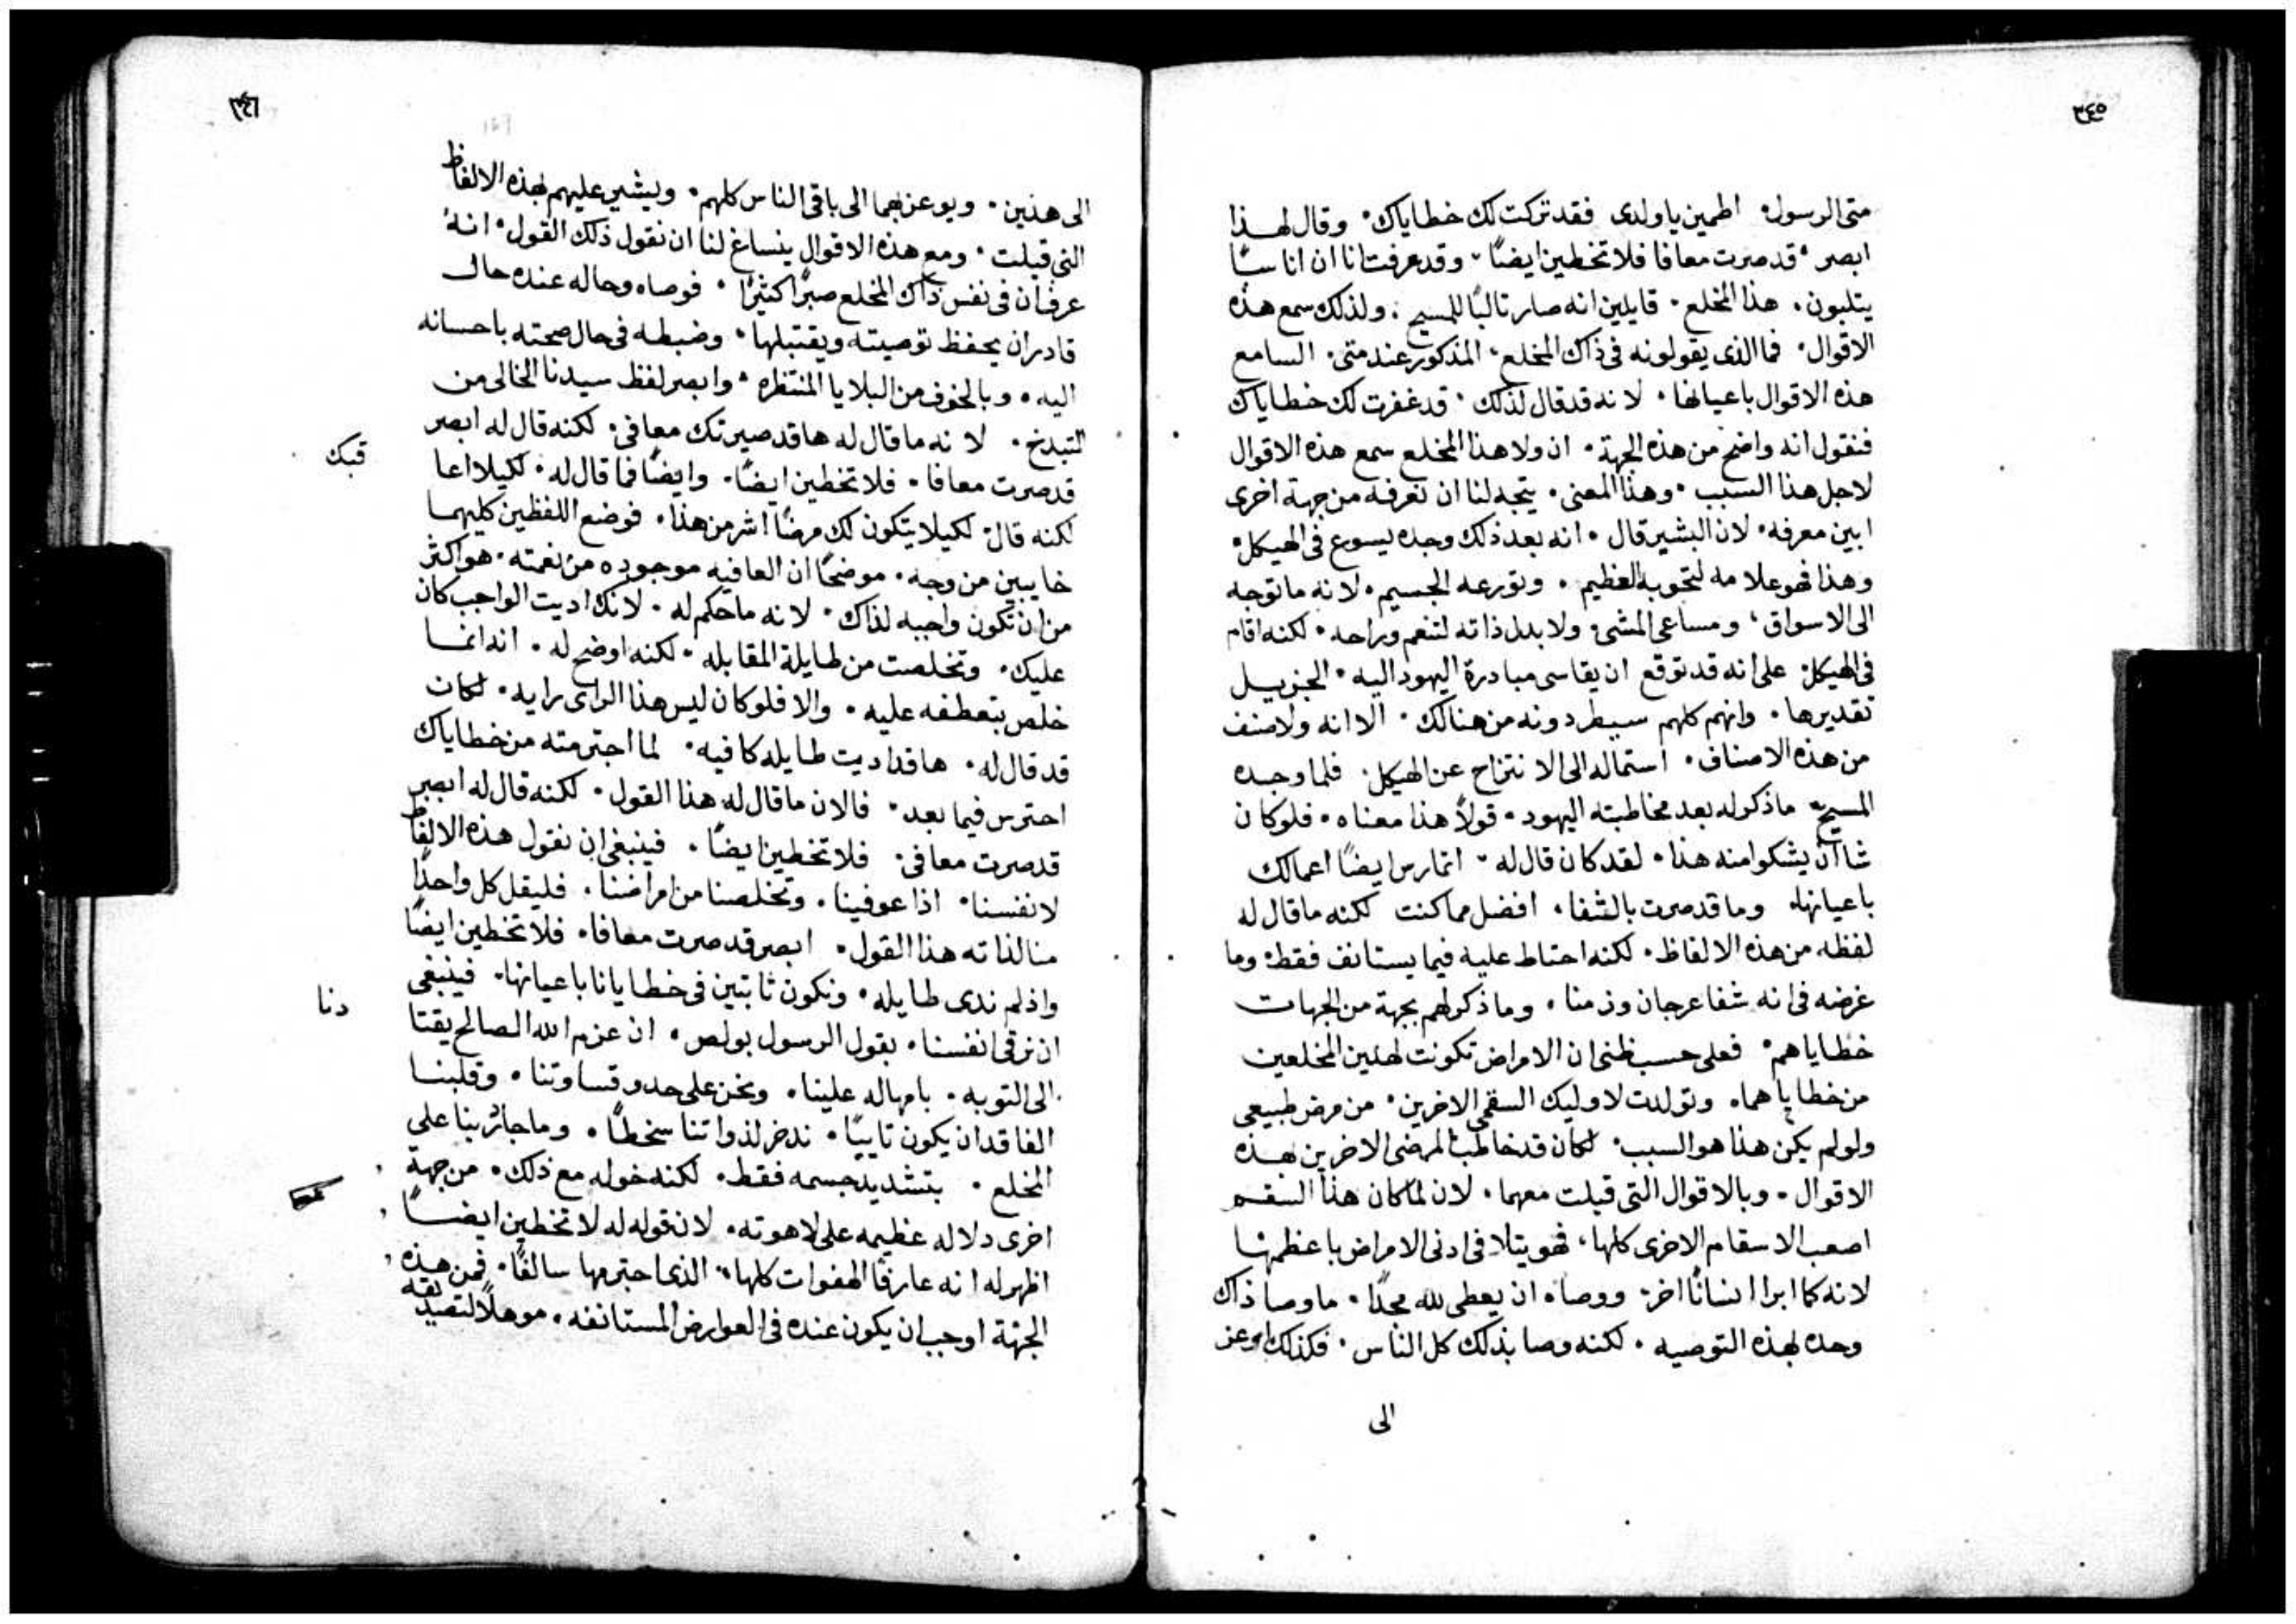 ٣٤٥
متى الرسول. اطمين ياولدى فقد تركت لك خطاياك. وقال لهذا
ابصر. قد صرت معافا فلا تخطين ايضًا. وقد عرفت انا ان اناسًا
يثلبون. هذا المخلع. قايلين انه صار ثالبًا للمسيح. ولذلك سمع هذه
الاقوال. فما الذى يقولونه فى ذاك المخلع. المذكور عند متى. السامع
هذه الاقوال باعيانها. لانه قد قال لذلك. قد غفرت لك خطاياك
فنقول انه واضح من هذه الجهة. ان ولا هذا المخلع سمع هذه الاقوال
لاجل هذا السبب. وهذا المعنى. يتجه لنا ان نعرفه من جهة اخرى
ابين معرفه. لان البشير قال. انه بعد ذلك وجده يسوع فى الهيكل.
وهذا فهو علامه لتحوبه العظيم. وتورعه الجسيم. لانه ما توجه
الى الاسواق، ومساعى المشى. ولا بدل ذاته لتنعم وراحه. لكنه اقام
فى الهيكل. على انه قد توقع ان يقاسى مبادرة اليهود اليه. الجزيل
تقديرها. وانهم كلهم سيطردونه من هنالك. الا انه ولا صنف
من هذه الاصناف. استماله الى الانتزاح عن الهيكل. فلما وجده
المسيح. ماذكر له بعد مخاطبته اليهود. قولًا هذا معناه. فلو كان
شاان يشكوا منه هذا. لقد كان قال له. اتمارس ايضًا اعمالك
باعيانها. وما قد صرت بالشفا. افضل مما كنت لكنه ما قال له
لفظه من هذه الالفاظ. لكنه احتاط عليه فيما يستانف فقط. وما
غرضه فى انه شفا عرجان وزمنا. وما ذكر لهم بجهة من الجهات
خطاياهم. فعلى حسب ظنى ان الامراض تكونت لهذين المخلعين
من خطاياهما. وتولدت لاوليك السقمى الاخرين. من مرض طبيعى
ولو لم يكن هذا هو السبب. لكان قد خاطب المرضى الاخرين بهذه
الاقوال. وبالاقوال التى قيلت معهما. لان لما كان هذا السقم
اصعب الاسقام الاخرى كلها، فهو يتلافى ادنى الامراض باعظمها
لانه كما ابرا انسانًا اخر. ووصاه ان يعطى لله مجدًا. ما وصا ذاك
وحده بهذه التوصيه. لكنه وصا بذلك كل الناس. فكذلك اوعز
الى
٣٤٦
الى هذين. ويوعز بهما الى باقى الناس كلهم. ويشير عليهم بهذه الالفاظ
التى قيلت. ومع هذه الاقوال ينساغ لنا ان نقول ذلك القول. انه
عرف ان فى نفس ذاك المخلع صبرًا كثيرًا. فوصاه وحاله عنده حال
قادر ان يحفظ توصيته ويقتبلها. وضبطه فى حال صحته باحسانه
اليه. وبالخوف من البلايا المنتظره. وابصر لفظ سيدنا الخالى من
التبدخ. لانه ما قال له ها قد صيرتك معافى. لكنه قال له ابصر
قد صرت معافا. فلا تخطين ايضًا. وايضًا فما قال له. لكيلا اعا
قبك
لكنه قال. لكيلا يتكون لك مرضًا اشر من هذا. فوضع اللفظين كليهما
خايبين من وجه. موضحًا ان العافيه موجوده من نعمته. هو اكثر
من ان تكون واجبه لذاك. لانه ما حكم له. لانك اديت الواجب كان
عليك. وتخلصت من طايلة المقابله. لكنه اوضح له. انه انما
خلص بتعطفه عليه. والا فلو كان ليس هذا الراى رايه. لكان
قد قال له. ها قد اديت طايله كافيه. لما اجترمته من خطاياك
احترس فيما بعد. فالان ما قال له هذا القول. لكنه قال له ابصر
قد صرت معافى. فلا تخطين ايضًا. فينبغى ان نقول هذه الالفاظ
لانفسنا. اذا عوفينا. وتخلصنا من امراضنا. فليقل كل واحدًا
منا لذاته هذا القول. ابصر قد صرت معافا. فلا تخطين ايضًا
واذ لم ندى طايله. ونكون ثابتين فى خطايانا باعيانها. فينبغى
ان نرقى انفسنا. بقول الرسول بولص. ان عزم الله الصالح يقتا
دنا
الى التوبه. بامهاله علينا. ونحن على حدو قساوتنا. وقلبنا
الفاقد ان يكون تايبًا. ندخر لذواتنا سخطًا. وما جاد بنا على
المخلع. بتشديد جسمه فقط. لكنه خوله مع ذلك. من جهة
اخرى دلاله عظيمه على لاهوته. لان قوله له لا تخطين ايضًا
اظهر له انه عارفًا الهفوات كلها. الذى اجترمها سالفًا. فمن هذه
الجهة اوجب ان يكون عنده فى العوارض المستانفه. موهلًا لتصديقه